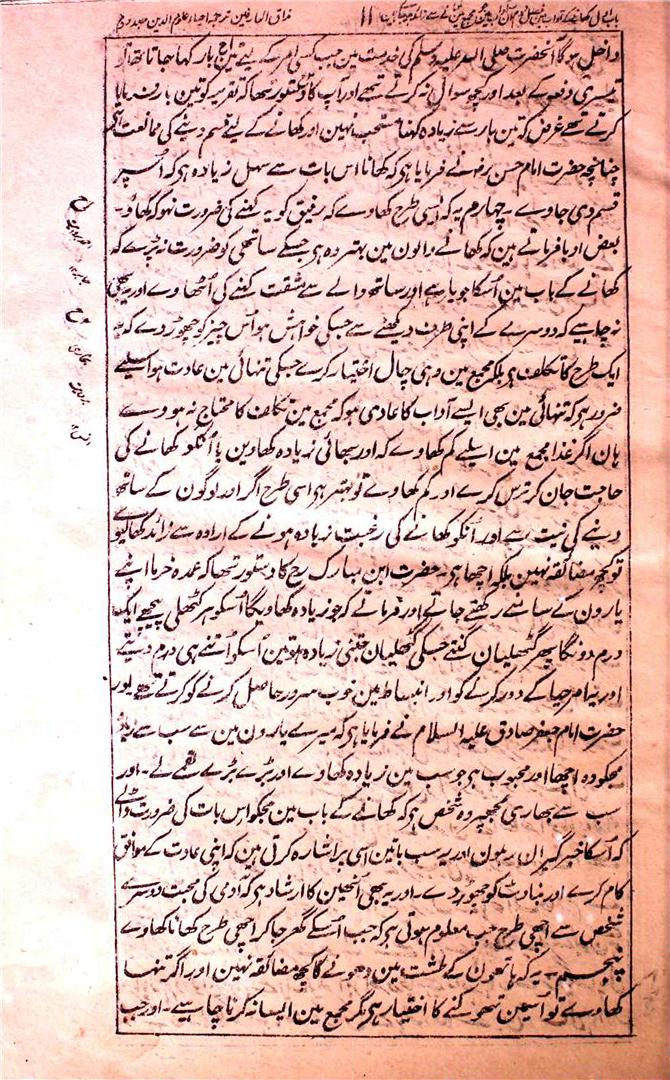 مذاق العارفین ترجمہ احیاء علوم الدین جلد دوم
۱۱
داخل ہوگا آنحضرت صلی اللہ علیہ وسلم کی خدمت مین جب کسی امر کے لیے تین بار کہا جاتا تھا تو
تیسری دفعہ کے بعد اور کچھ سوال نہ کرتے تھے اور آپ کا دستور تھا کہ تقریر کو تین بار فرمایا
کرتے تھے غرض کہ تین بار سے زیادہ کہنا مستحب نہین اور کھانے کے لیے قسم دینے کی ممانعت
چنانچہ حضرت امام حسن رض نے فرمایا ہی کہ کھانا اس بات سے سہل زیادہ ہی کہ اُسپر
قسم دی جاوے ۔ چہارم یہ کہ ایسی طرح کھاوے کہ رفیق کو یہ کہنے کی ضرورت نہو کہ کھاؤ ۔
بعض ادبا فرماتے ہین کہ کھانے والون مین بہتر وہ ہی جسکے ساتھی کو ضرورت نہ پڑے کہ
کھانے کے باب مین اُسکا جویا رہے اور ساتھ والے سے مشقت کہنے کی اُٹھاوے اور یہ بھی
نہ چاہیے کہ دوسرے کے اپنی طرف دیکھنے سے جسکی خواہش ہو اُس چیز کو چھوڑ دے کہ یہ
ایک طرح کا تکلف ہی بلکہ مجمع مین وہی چال اختیار کرے جسکی تنہائی مین عادت ہو اسلیے
ضرور ہی کہ تنہائی مین بھی ایسے آداب کا عادی ہو کہ مجمع مین تکلف کا محتاج نہ ہووے
ہان اگر غذا مجمع مین اسلیے کم کھاوے کہ اور بھائی زیادہ کھاوین یا اُنکو کھانے کی
حاجت جان کر ترس کرے اور کم کھاوے تو بہتر ہی اسی طرح اگر اور لوگون کے ساتھ
دینے کی نیت سے اور اُنکو کھانے کی رغبت زیادہ ہونے کے ارادہ سے زائد کھالیوے
تو کچھ مضائقہ نہین بلکہ اچھا ہی ۔ حضرت ابن مبارک رح کا دستور تھا کہ عمدہ خرما اپنے
یارون کے سامنے رکھتے جاتے اور فرماتے کہ جو زیادہ کھاویگا اُسکو ہر گٹھلی پیچھے ایک
درم دونگا پھر گٹھلیان گنتے جسکی گٹھلیان جتنی زیادہ ہوتین اُسکو اُتنے ہی درم دیتے
اور یہ امر حیا کے دور کرنے کو اور انبساط مین خوب سرور حاصل کرنے کو کرتے تھے اور
حضرت امام جعفر صادق علیہ السلام نے فرمایا ہی کہ میرے یارون مین سے سب سے زیادہ
مجکو وہ اچھا اور محبوب ہی جو سب مین زیادہ کھاوے اور بڑے بڑے لقمے لے ۔ اور
سب سے بھاری مجھپر وہ شخص ہی کہ کھانے کے باب مین مجکو اس بات کی ضرورت ڈالے
کہ اُسکا خبر گیران رہون اور یہ سب باتین اسی پر اشارہ کرتی ہین کہ اپنی عادت کے موافق
کام کرے اور بناوٹ کو چھوڑ دے ۔ اور یہ بھی اُنھین کا ارشاد ہی کہ آدمی کی محبت دوسرے
شخص سے اچھی طرح جب معلوم ہوتی ہی کہ جب اُسکے گھر جا کر اچھی طرح کھانا کھاوے
پنجم ۔ یہ کہ ہاتھون کے طشت مین دھونے کا کچھ مضائقہ نہین اور اگر تنہا
کھاوے تو اُسمین تھوکنے کا اختیار ہی مگر مجمع مین ایسا نہ کرنا چاہیے ۔ اور جب